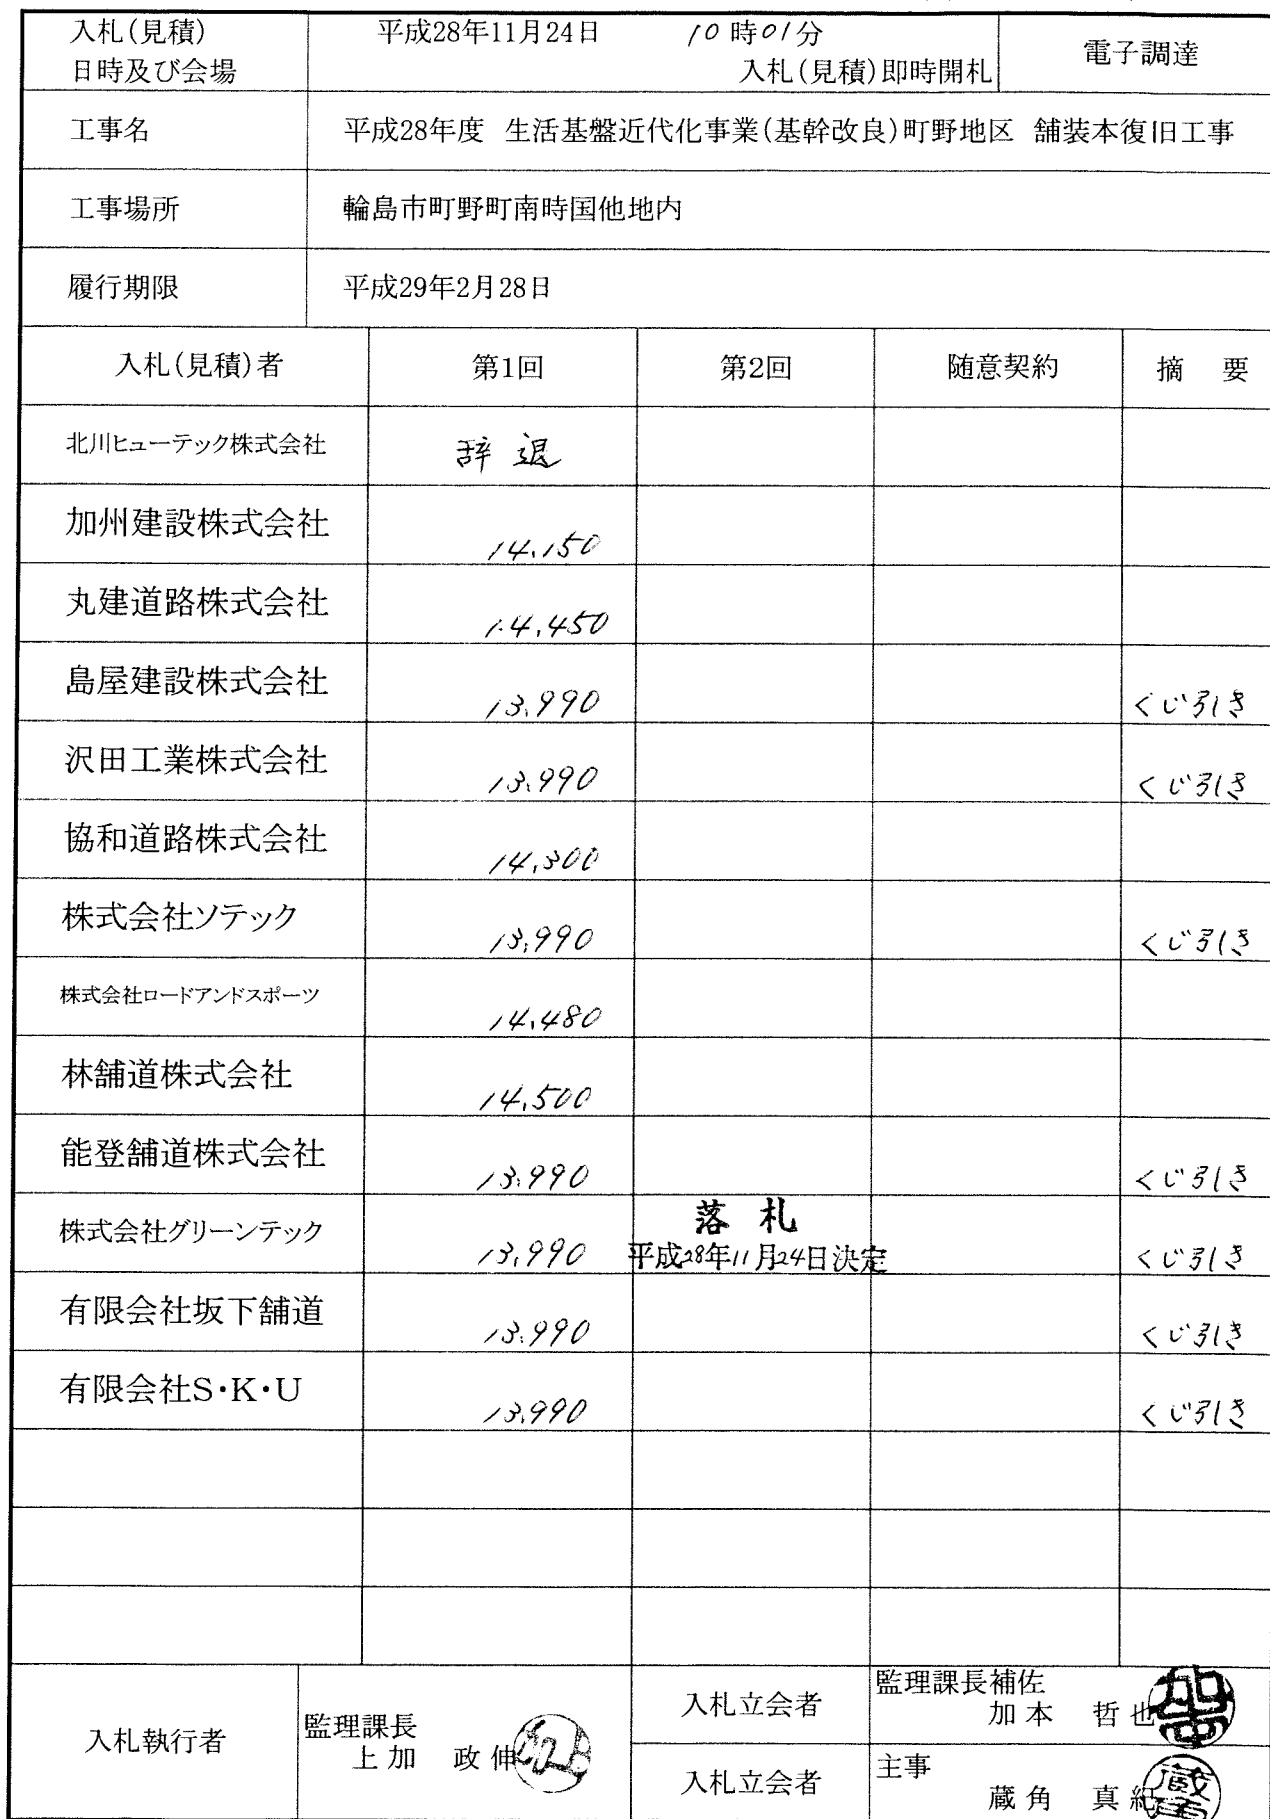 入札(見積)
日時及び会場
平成28年11月24日 10時01分
入札(見積)即時開札
電子調達
工事名 平成28年度 生活基盤近代化事業(基幹改良)町野地区 舗装本復旧工事
工事場所 輪島市町野町南時国他地内
履行期限 平成29年2月28日
入札(見積)者 第1回 第2回 随意契約 摘 要
北川ヒューテック株式会社 辞退
加州建設株式会社 14,150
丸建道路株式会社 14,450
島屋建設株式会社 13,990 くじ引き
沢田工業株式会社 13,990 くじ引き
協和道路株式会社 14,300
株式会社ソテック 13,990 くじ引き
株式会社ロードアンドスポーツ 14,480
林舗道株式会社 14,500
能登舗道株式会社 13,990 くじ引き
落札
株式会社グリーンテック 13,990 平成28年11月24日決定 くじ引き
有限会社坂下舗道 13,990 くじ引き
有限会社S・K・U 13,990 くじ引き
入札執行者
監理課長
上加 政伸
入札立会者
監理課長補佐
加本 哲也
入札立会者
主事
蔵角 真紀